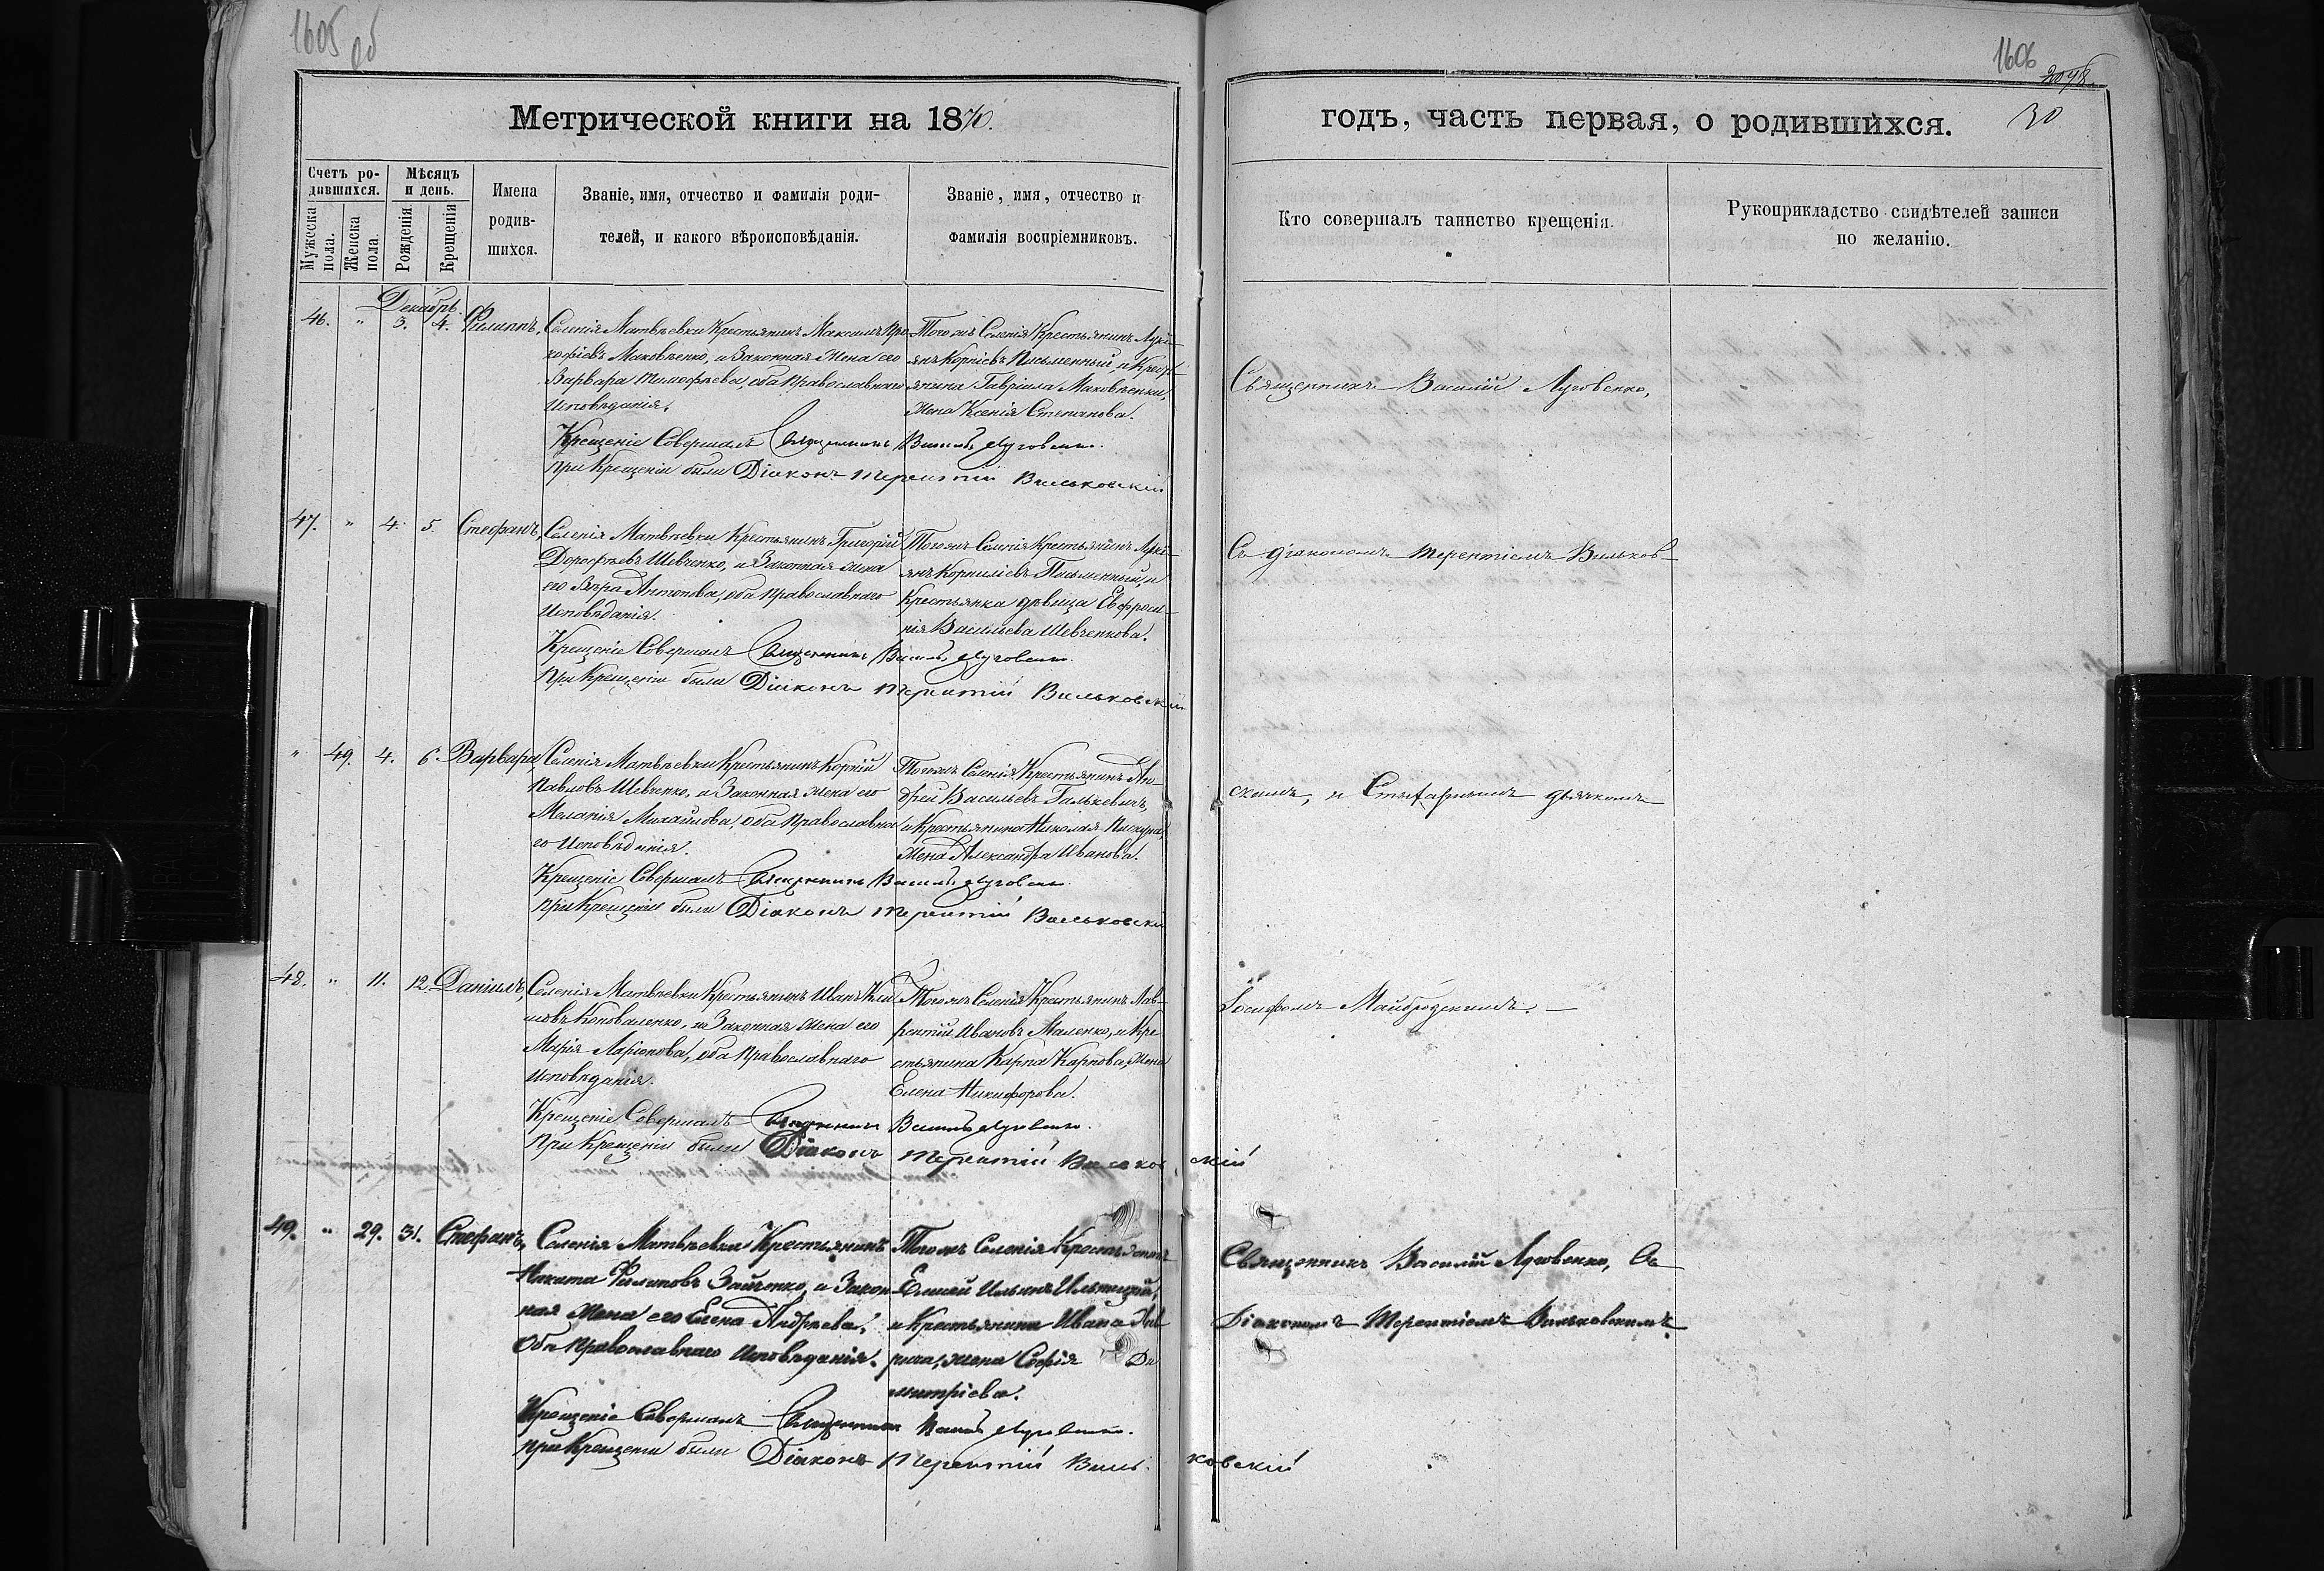 1605 об
1606
2078
30
Метрической книги на 1870.
годъ, часть первая, о родившихся.
Счетъ родившихся.
Мужеска пола.
Женска пола.
Мѣсяцъ и день.
Рожденія
Крещенія
Имена родившихся.
Званіе, имя, отчество и фамилія роди-
телей, и какого вѣроисповѣданія.
Званіе, имя, отчество и
фамилія воспріемниковъ.
Кто совершалъ таинство крещенія.
Рукоприкладство свидѣтелей записи
по желанію.
Декабрь.
46. " 3. 4. Филиппъ,
Селенія Матвѣевки Крестьянинъ Максимъ Про-
кофіевъ Маковѣенко, и Законная Жена его
Варвара Тимофѣева, оба Православнаго
Исповѣданія.
Того же Селенія Крестьянинъ Лукі-
янъ Корніевъ Письменный, и Крест-
янина Гавріила Маковѣенки,
Жена Ксенія Степанова.
Крещеніе Совершалъ Священникъ Василій Луговенко.
При Крещеніи были Діаконъ Терентій Вильковскій
Священникъ Василій Луговенко,
47. " 4. 5. Стефанъ,
Селенія Матвѣевки Крестьянинъ Григорій
Дорофѣевъ Шевченко, и Законная жена
его Вѣра Антонова, оба Православнаго
Исповѣданія.
Того же Селенія Крестьянинъ Лукі-
янъ Корниліевъ Письменный, и
Крестьянка дѣвица Евфроси-
нія Васильева Шевченкова.
Крещеніе Совершалъ Священникъ Василій Луговенко.
При Крещеніи были Діаконъ Терентій Вильковскій
Съ діакономъ Терентіемъ Вильков-
" 49. 4. 6. Варвара
Селенія Матвѣевки Крестьянинъ Корній
Павловъ Шевченко, и Законная жена его
Меланія Михайлова, оба Православна
го Исповѣданія.
Того же Селенія Крестьянинъ Ан-
дрей Васильевъ Галькевичъ,
и Крестьянина Николая
Жена Александра Иванова.
Крещеніе Совершалъ Священникъ Василій Луговенко.
При Крещеніи были Діаконъ Терентій Вильковскій
скимъ, и дьячкомъ
48. " 11. 12. Даніилъ,
Селенія Матвѣевки Крестьянинъ Иванъ Кли-
мовъ Коноваленко, и Законная жена его
Марія Ларіонова, оба Православнаго
Исповѣданія.
Того же Селенія Крестьянинъ Лав-
рентій Ивановъ Маленко, и Кре-
стьянина Карпа Карпова, Жена
Елена Никифорова.
Крещеніе Совершалъ Священникъ Василій Луговенко.
При Крещеніи были Діаконъ Терентій Вильковскій
Іосифомъ Майбродскимъ.
49. " 29. 31. Стефанъ,
Селенія Матвѣевки Крестьянинъ
Никита Филиповъ Зайченко, и Закон-
ная Жена его Елена Андрѣева,
Оба Православнаго Исповѣданія.
Того же Селенія Крестьянинъ
Елисей Ильинъ
и Крестьянина Ивана
жена Софія Ди
митріева.
Крещеніе Совершалъ Священникъ Василій Луговенко.
При Крещеніи были Діаконъ Терентій Вильковскій
Священникъ Василій Луговенко, Съ
Діакономъ Терентіемъ Вильковскимъ.